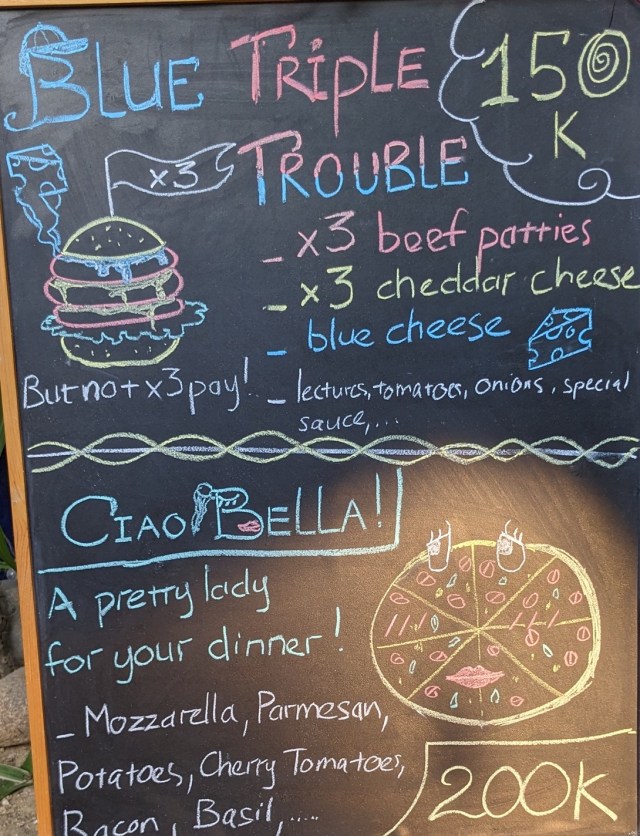 BLUE TRIPLE
TROUBLE
150
K
x3
- x3 beef patties
- x3 cheddar cheese
- blue cheese
But not x3 pay!
- lectures, tomatoes, onions, special
sauce,...
CIAO BELLA!
A pretty lady
for your dinner!
- Mozzarella, Parmesan,
Potatoes, Cherry Tomatoes,
Bacon, Basil,.....
200K